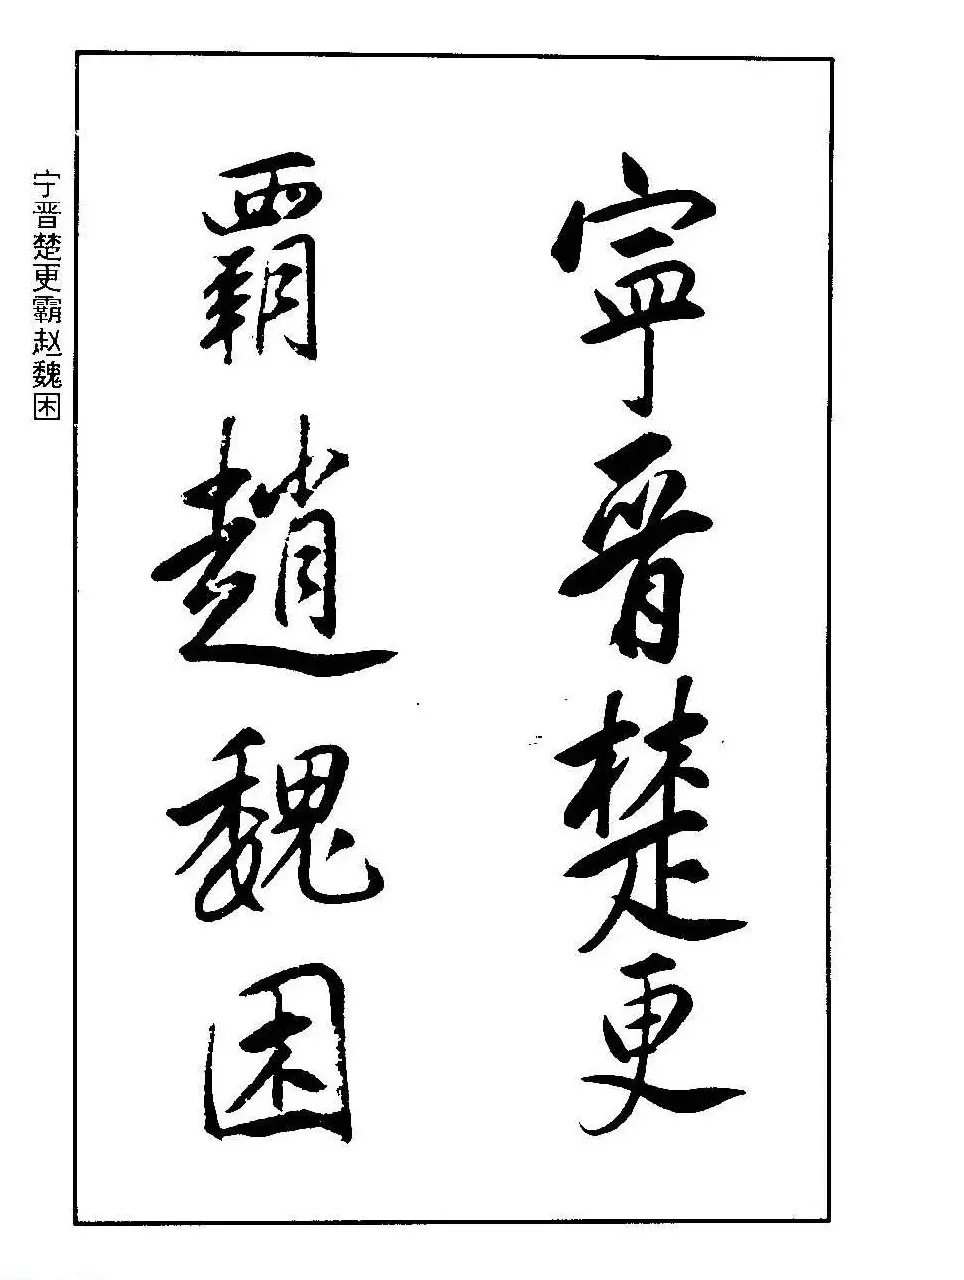 寧晉楚更
覇趙魏困
宁晋楚更霸赵魏困